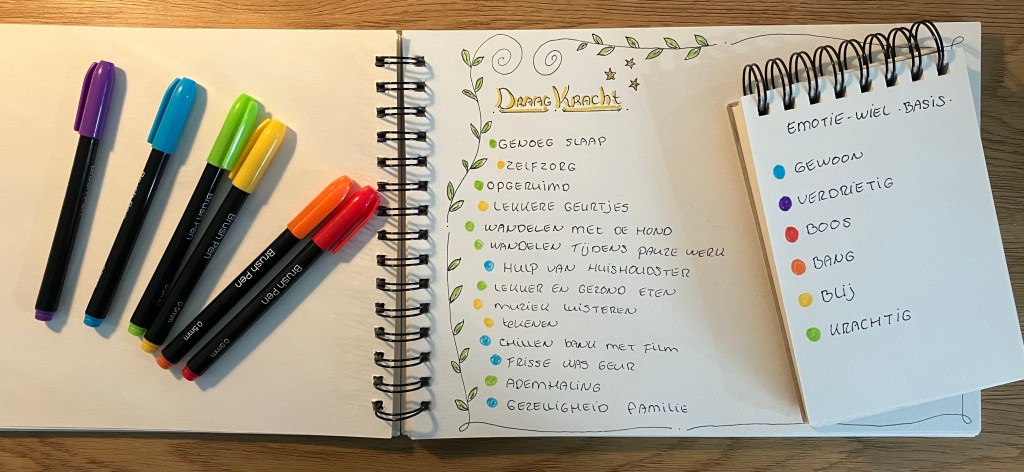 Brush Pen
0.5mm
Brush Pen
0.5mm
Brush Pen
0.5mm
Brush Pen
0.5mm
DRAAG KRACHT
GENOEG SLAAP
ZELFZORG
OPGERUIMD
LEKKERE GEURTJES
WANDELEN MET DE HOND
WANDELEN TIJDENS PAUZE WERK
HULP VAN HUISHOUDSTER
LEKKER EN GEZOND ETEN
MUZIEK LUISTEREN
TEKENEN
CHILLEN BANK MET FILM
FRISSE WAS GEUR
ADEMHALING
GEZELLIGHEID FAMILIE
EMOTIE-WIEL .BASIS.
GEWOON
VERDRIETIG
BOOS
BANG
BLIJ
KRACHTIG